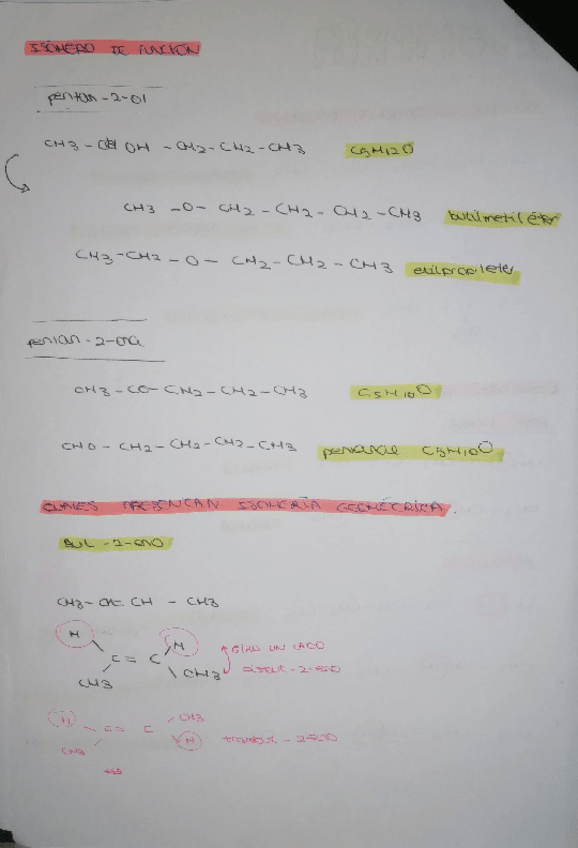 ISÓMERO DE FUNCIÓN
pentan-2-ol
CH3 - CH OH - CH2 - CH2 - CH3 C5H12O
CH3 - O - CH2 - CH2 - CH2 - CH3 butilmetil éter
CH3 - CH2 - O - CH2 - CH2 - CH3 etilpropileter
pentan-2-ona
CH3 - CO - CH2 - CH2 - CH3 C5H10O
CHO - CH2 - CH2 - CH2 - CH3 pentanal C5H10O
CUALES PRESENTAN ISOMERÍA GEOMÉTRICA.
But-2-eno
CH3 - CH = CH - CH3
H H GIRO UN LADO
C = C
CH3 CH3 cisbut-2-eno
H CH3
C = C
CH3 H transbut-2-eno